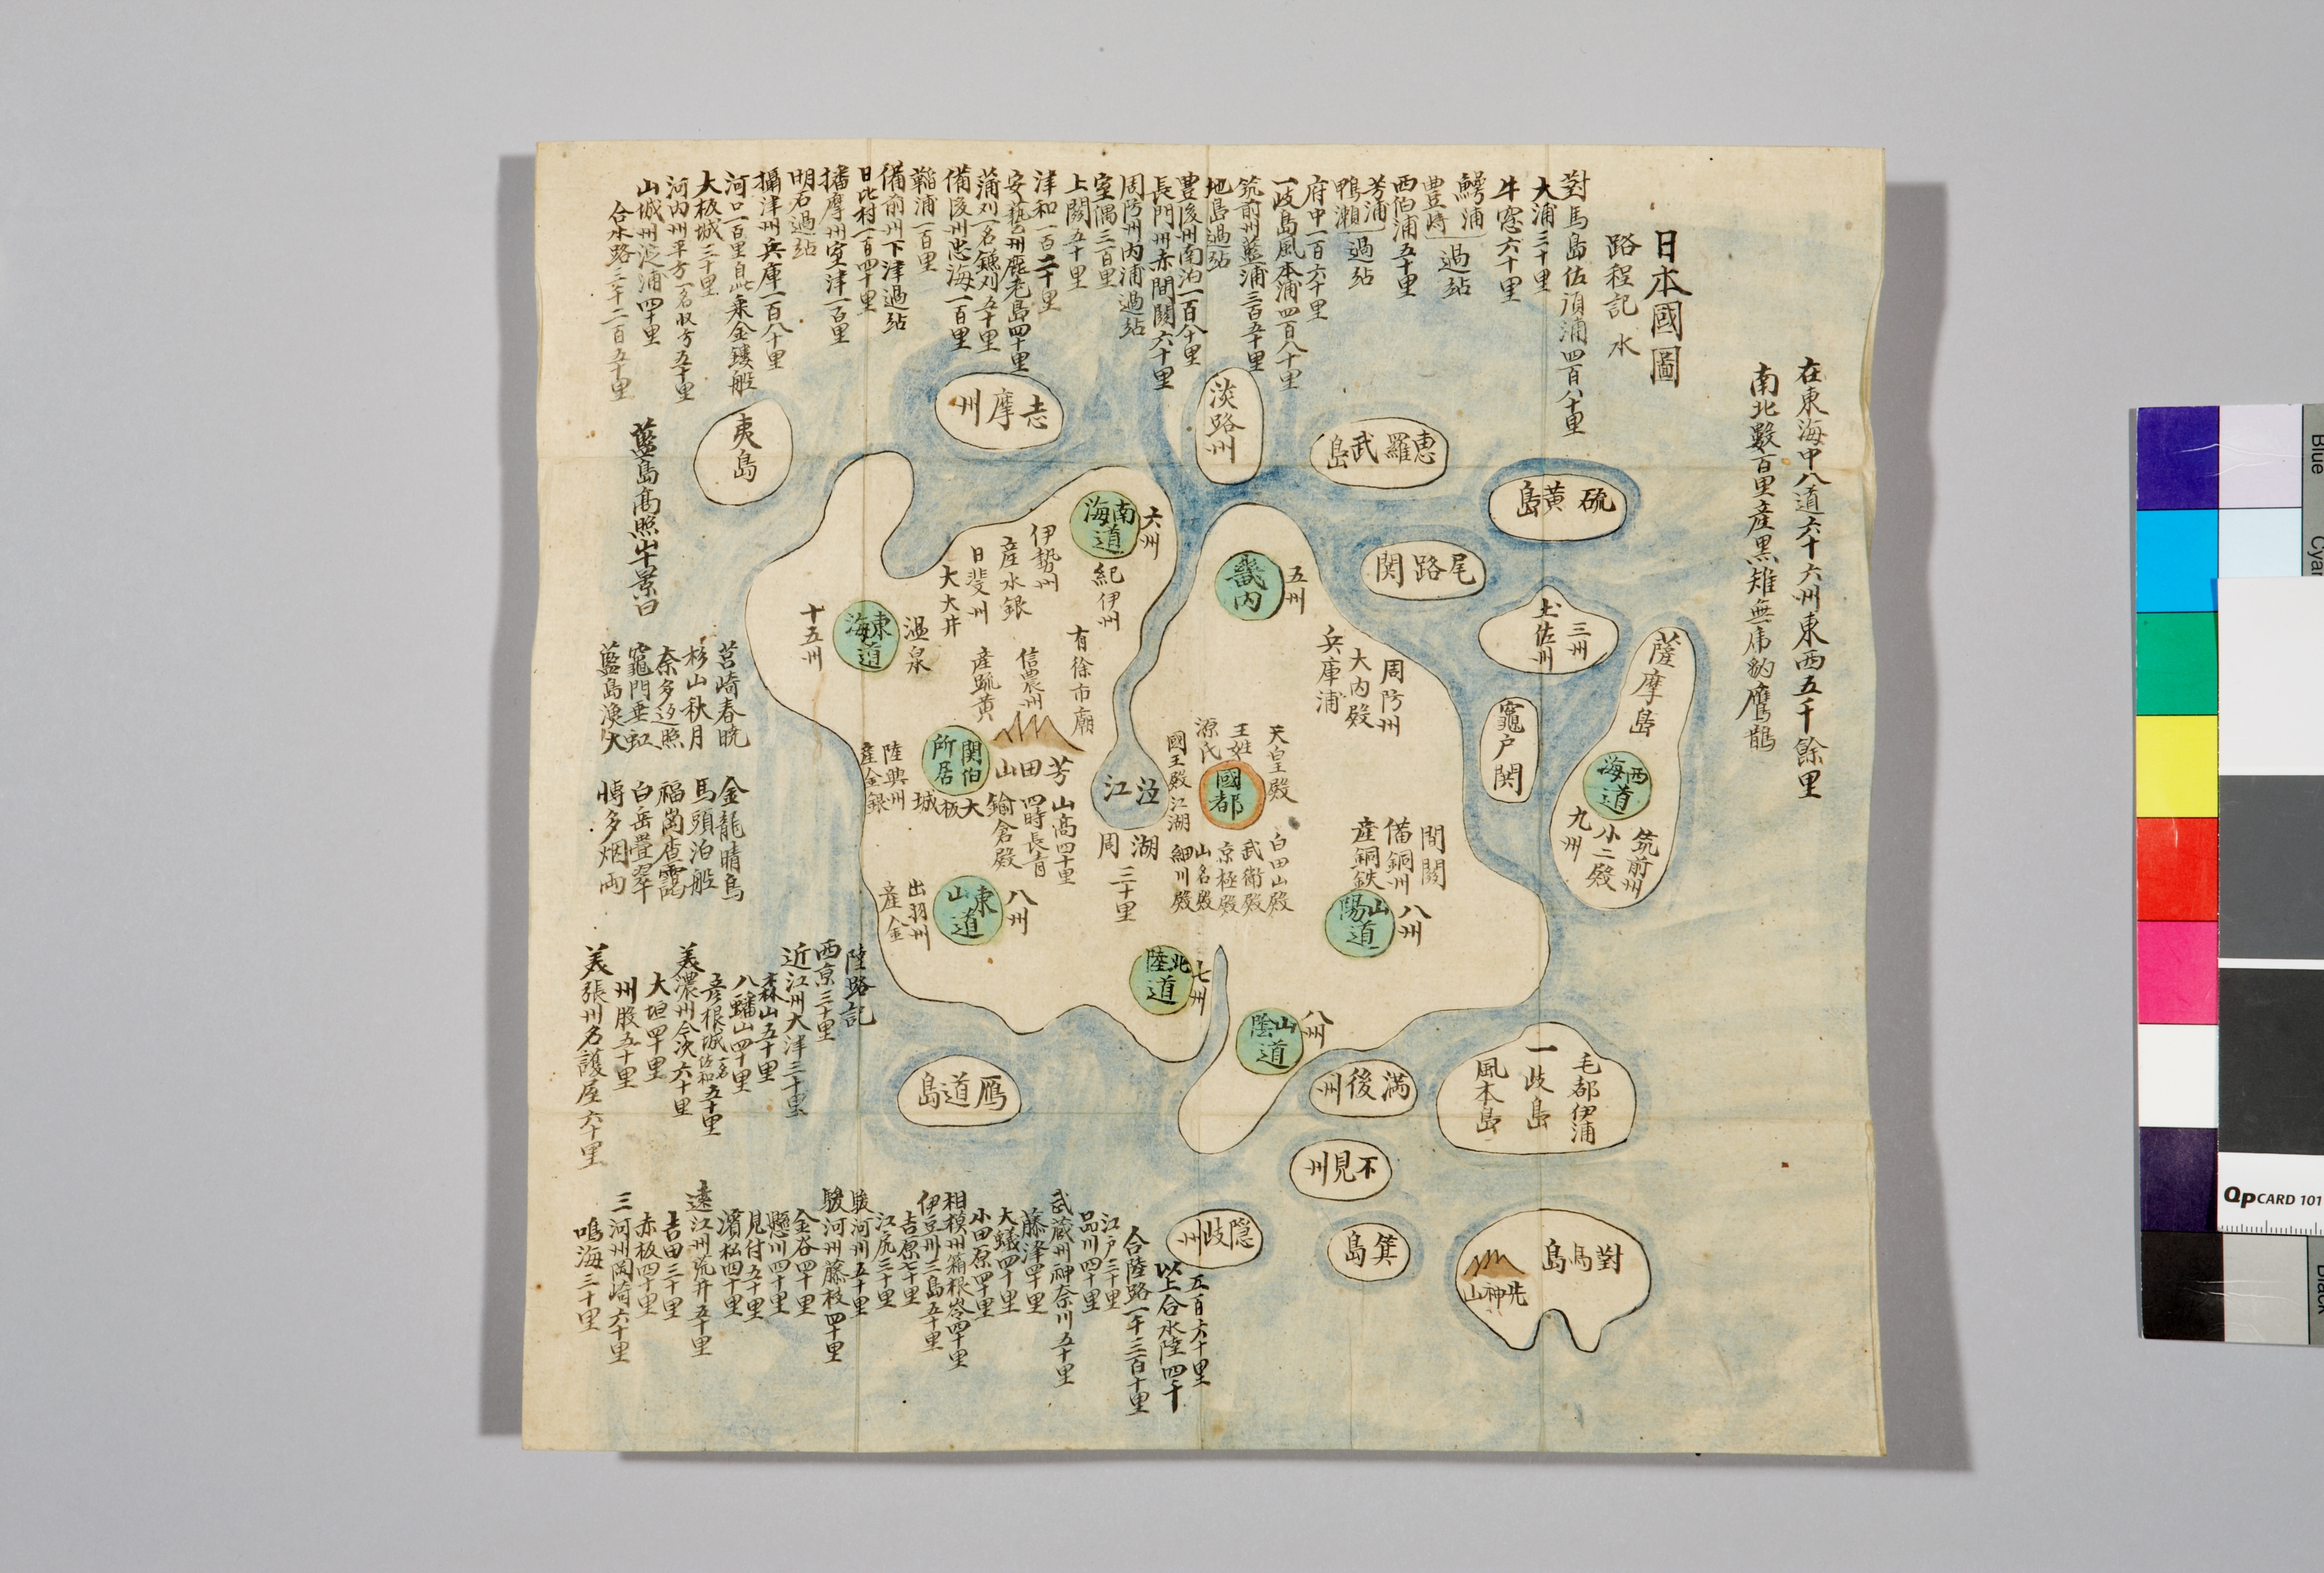 在東海中八道六十六州東西五千餘里
南北數百里産黑雉無虎豹鷹鵲
日本國圖
路程記 水
對馬島佐湏浦四百八十里
大浦三十里
牛窓六十里
鰐浦
豊﨑 過站
西伯浦五十里
芳浦
鴨瀨 過站
府中一百六十里
一歧島風本浦四百八十里
筑前州藍浦三百五十里
地島過站
豊後州南泊一百八十里
長門州赤間関六十里
周防州内浦過站
室隅三百里
上関五十里
津和一百二十里
安藝州鹿老島四十里
蒲刈一名鎌刈五十里
備後州忠海一百里
鞱浦一百里
備前州下津過站
日比村一百四十里
播摩州室津一百里
明石過站
攝津州兵庫一百八十里
河口一百里自此乘金鏤船
大板城三十里
河内州平方一名牧方五十里
山城州淀浦四十里
合水路三千二百五十里
藍島高照山十景曰
莒崎春暁
杉山秋月
奈多返照
竈門垂虹
藍島漁火
金龍晴鳥
馬頭泊船
福崗杳靄
白岳疊翠
博多烟雨
夷島
志摩州
淡路州
惠羅武島
硫黃島
尾路関
土佐州
三州
薩摩島
竈戸関
西海道
九州
小二殿
筑前州
南海道
六州
紀伊州
伊勢州
産水銀
日斐州
大大井
東海道
十五州
温泉
有徐市廟
信農州
産䟽黄
関伯所居
大板城
陸奥州
産金銀
芳田山
山高四十里
四時長青
鎌倉殿
東山道
八州
出羽州
産金
江泣
湖周三十里
畿内
五州
周防州
大内殿
兵庫浦
國都
天皇殿
王姓
源氏
國王殿江湖
白田山殿
武衛殿
京極殿
山名殿
細川殿
間関
備銅州
産銅鉄
山陽道
八州
北陸道
七州
山陰道
八州
鴈道島
満後州
不見州
隠歧州
箕島
毛都伊浦
一歧島
風本島
對馬島
陸路記
西京三十里
近江州大津三十里
森山五十里
八蟠山四十里
彦根城一名佐和五十里
美濃州今次六十里
大垣四十里
州股五十里
美張州名護屋六十里
鳴海三十里
三河州岡崎六十里
赤板四十里
吉田三十里
遠江州荒井五十里
濱松四十里
見付五十里
懸川四十里
金谷四十里
駿河州藤枝四十里
駿河州五十里
江尻三十里
吉原七十里
伊豆州三島五十里
相模州箱根嶺四十里
小田原四十里
大蟻四十里
藤澤四十里
武蔵州神奈川五十里
品川四十里
江戸三十里
合陸路一千三百十里
以上合水陸四千
五百六十里